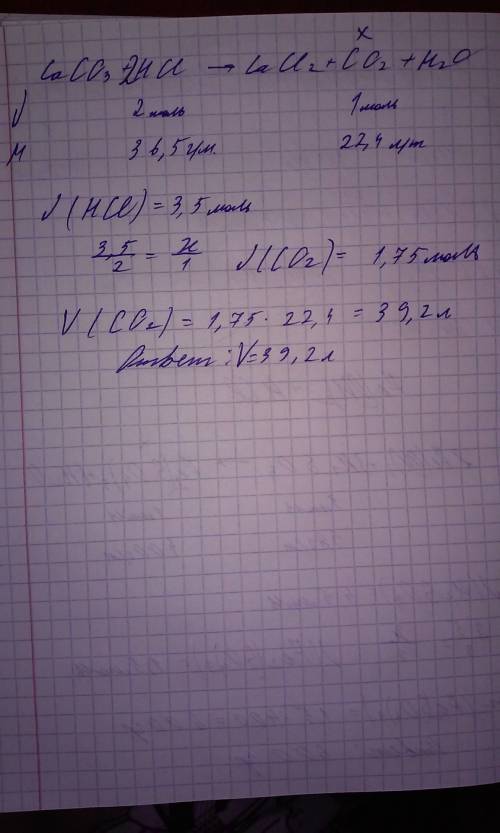 CaCO3 + 2HCl → CaCl2 + CO2 + H2O
x
ν 2 моль 1 моль
M 36,5 г/м. 22,4 л/т
ν(HCl) = 3,5 моль
3,5/2 = x/1 ν(CO2) = 1,75 моль
V(CO2) = 1,75 · 22,4 = 39,2 л
Ответ: V=39,2 л